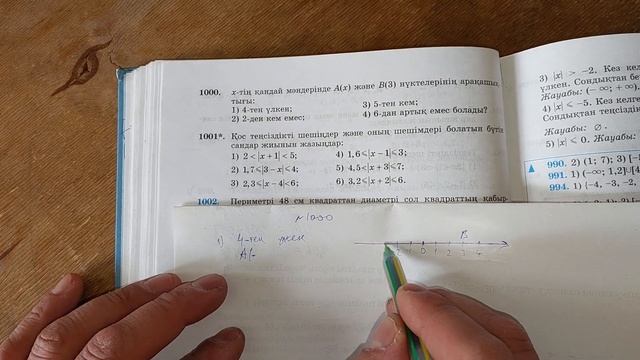 1000. x-тің қандай мәндерінде A(x) және B(3) нүктелерінің арақашық-
тығы:
1) 4-тен үлкен; 3) 5-тен кем;
2) 2-ден кем емес; 4) 6-дан артық емес болады?
1001*. Қос теңсіздікті шешіңдер және оның шешімдері болатын бүтін
сандар жиынын жазыңдар:
1) 2<|x+1|<5; 4) 1,6⩽|x−1|⩽3;
2) 1,7⩽|3−x|⩽4; 5) 4,5<|x+3|⩽7;
3) 2,3⩽|x−4|<6; 6) 3,2⩽x+2|⩽6.
1002. Периметрі 48 см квадраттан диаметрі сол квадраттың қабыр-
3) |x| > −2. Кез кел
үлкен. Сондықтан
Жауабы: (−∞; +∞).
4) |x|⩽−5. Кез келге
Сондықтан теңсіздік
Жауабы: ∅.
5) |x|⩽0. Жауабы:
990. 2) (1; 7); 3) [−
991. 1) (−∞; 1,2]
994. 1) {−4, −3, −2,
№1000
1) 4-тен үлкен
A(
B
0 1 2 3 4